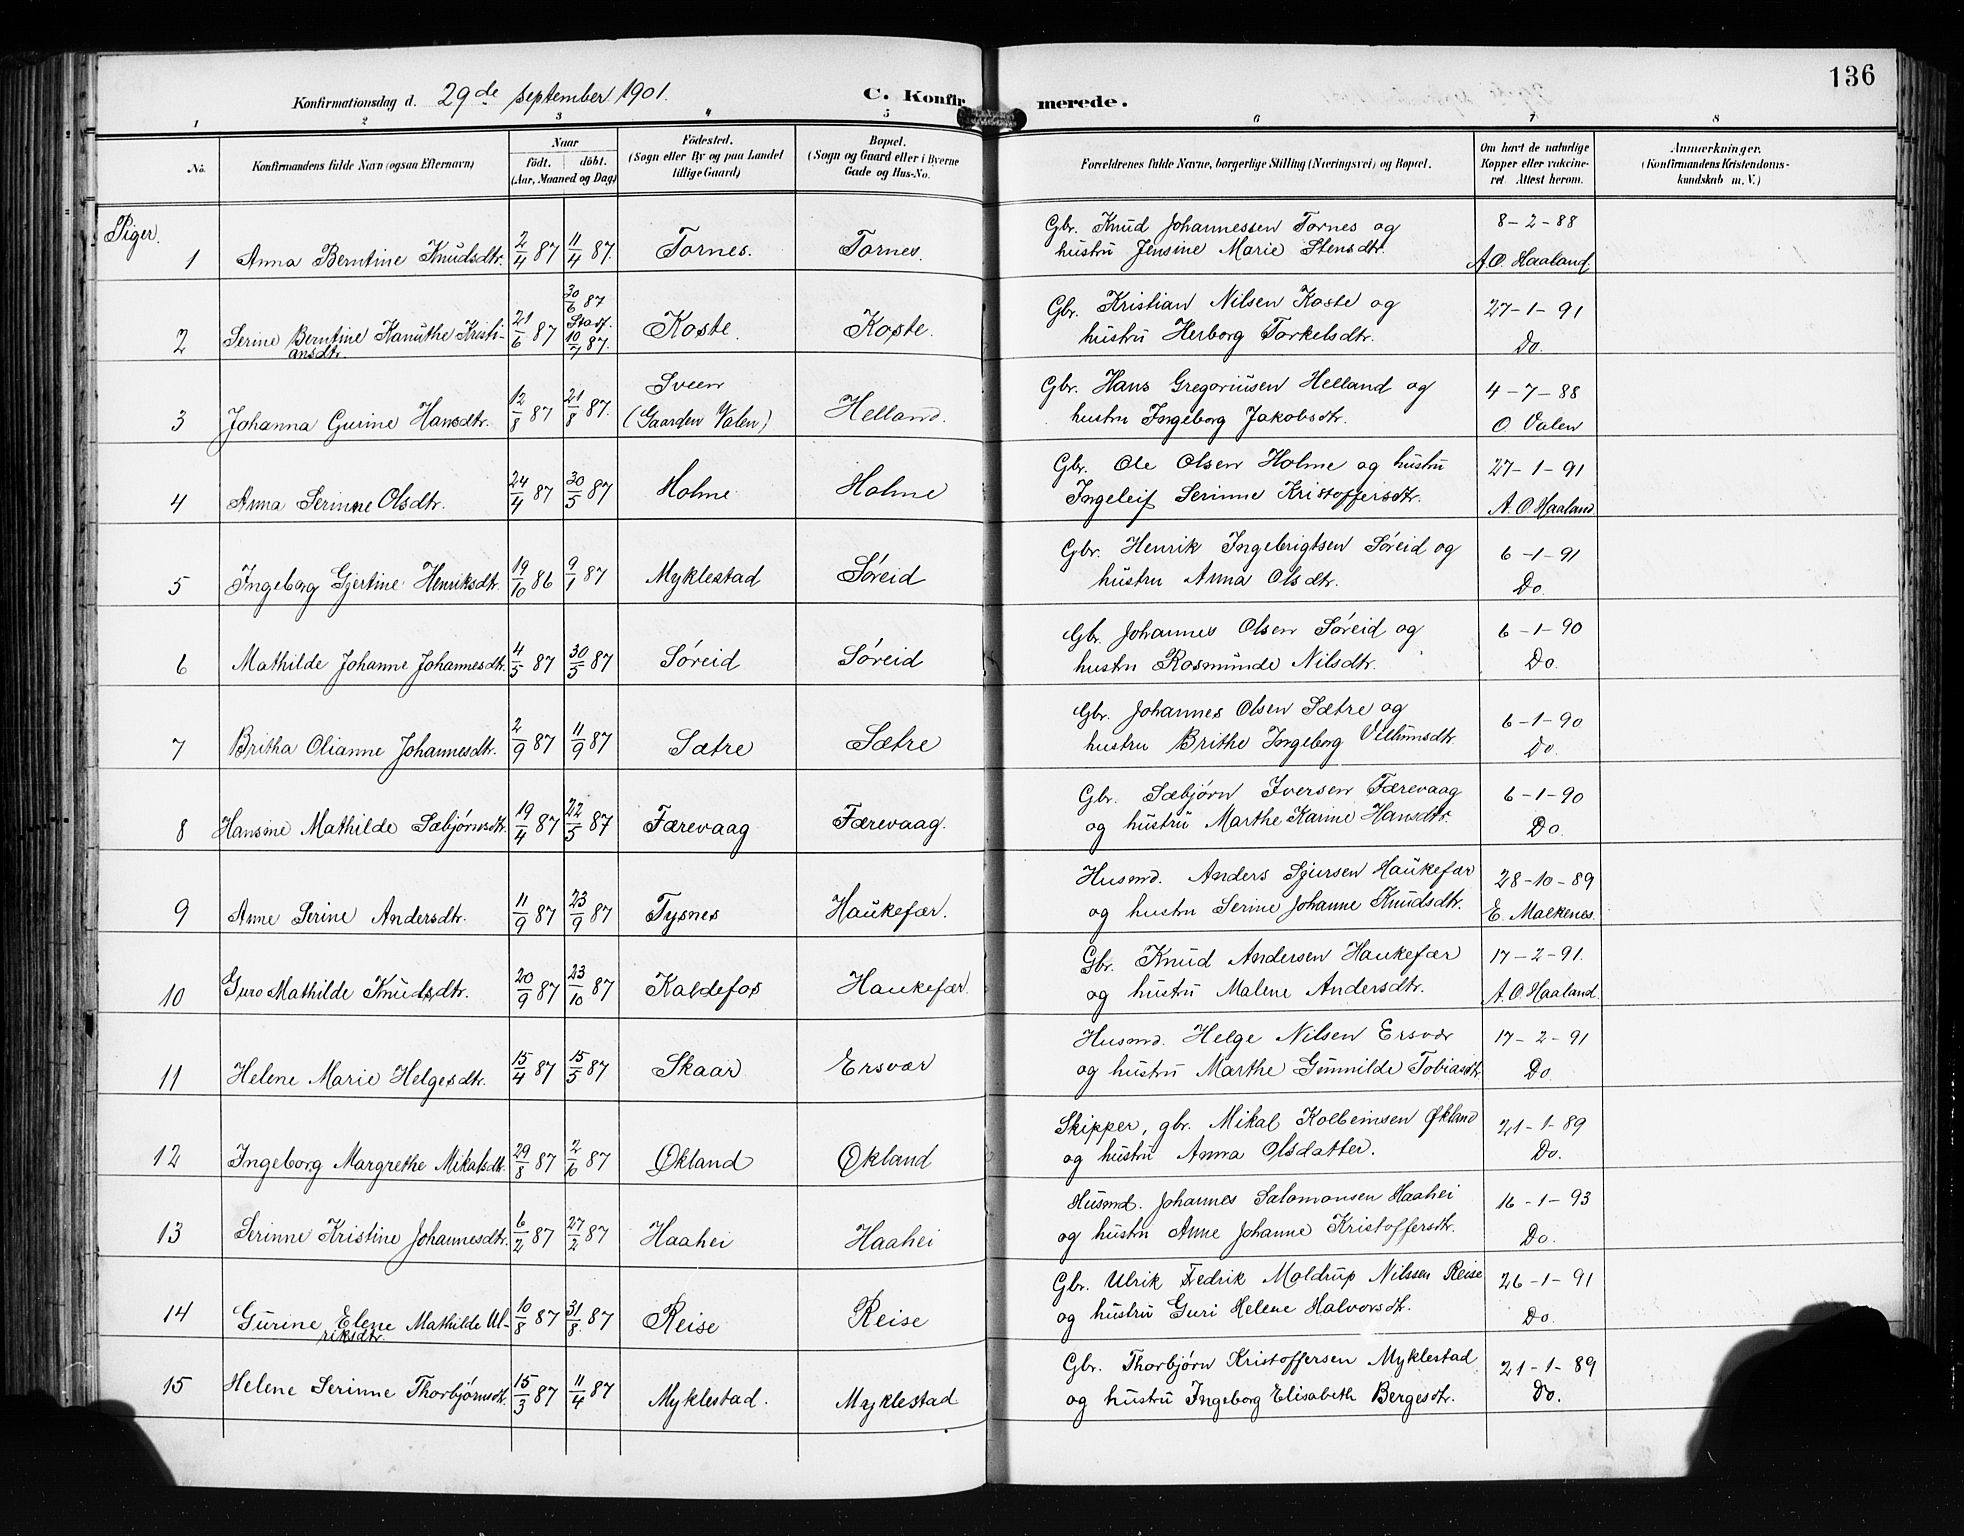 136
Konfirmationsdag d. 29de september 1901. C. Konfir- merede.
1 2 3 4 5 6 7 8
No. Konfirmandens fulde Navn (ogsaa Efternavn) Naar födt. döbt. (Aar, Maaned og Dag) Födested. (Sogn eller By og paa Landet tillige Gaard) Bopæl. (Sogn og Gaard eller i Byerne Gade og Hus-No. Forældrenes fulde Navne, borgerlige Stilling (Næringsvei) og Bopæl. Om havt de naturlige Kopper eller vakcineret Attest herom. Anmerkninger. (Konfirmandens Kristendomskundskab m. V.)
Piger.
1 Anna Berntine Knudsdtr. 2/4 87 11/4 87. Tornes. Tornes. Gbr. Knud Johannessen Tornes og 8-2-88
hustru Jensine Marie Stensdtr. A.O. Haaland.
2 Serine Berntine Kanuthe Kristi- 21/6 87 30/6 87 Stadf. 10/7 87. Koste Koste. Gbr. Kristian Nilsen Koste og 27-1-91
ansdtr hustru Herborg Torkelsdtr. Do.
3 Johanna Gurine Hansdtr. 12/8 87 21/8 87. Sveen (Gaarden Valen) Helland. Gbr. Hans Gregoriusen Helland og 4-7-88
hustru Ingeborg Jakobsdtr. O. Valen
4 Anna Serinne Olsdtr. 24/4 87 30/5 87 Holme Holme Gbr. Ole Olsen Holme og hustru 27-1-91
Ingeleif Serinne Kristoffersdtr. A.O. Haaland
5 Ingeborg Gjertine Henriksdtr. 19/10 86 9/1 87 Myklestad Søreid Gbr. Henrik Ingebrigtsen Søreid og 6-1-91
hustru Anna Olsdtr. Do.
6 Mathilde Johanne Johannesdtr. 4/5 87 30/5 87 Søreid Søreid Gbr. Johannes Olsen Søreid og 6-1-90
hustru Rosmunde Nilsdtr. Do.
7 Britha Olianne Johannesdtr. 2/9 87 11/9 87 Sætre Sætre Gbr. Johannes Olsen Sætre og 6-1-90
hustru Brithe Ingeborg Do.
8 Hansine Mathilde Sæbjørnsdtr. 19/4 87 22/5 87 Færevaag Færevaag. Gbr. Sæbjørn Iversen Færevaag 6-1-90
og hustru Marthe Karine Hansdtr. Do.
9 Anne Serine Andersdtr. 11/9 87 23/9 87 Tysnes Haukefær. Husmd. Anders Sjursen Haukefær 28-10-89
og hustru Serine Johanne Knudsdtr. E. Malkenes.
10 Guro Mathilde Knudsdtr. 20/9 87 23/10 87 Kaldefos Haukefær. Gbr. Knud Andersen Haukefær 17-2-91.
og hustru Malene Andersdtr. A.O. Haaland.
11 Helene Marie Helgesdtr. 15/4 87 15/5 87 Skaar Ersvær Husmd. Helge Nilsen Ersvær 17-2-91
og hustru Marthe Gunnilde Tobiasdtr. Do
12 Ingeborg Margrethe Mikalsdtr. 29/8 87 2/10 87 Økland Økland Skipper, gbr. Mikal Kolbeinsen Økland 21-1-89
og hustru Anna Olsdatter. Do.
13 Serinne Kristine Johannesdtr. 6/2 87 27/2 87 Haahei Haahei Husmd. Johannes Salomonsen Haahei 16-1-93
og hustru Anne Johanne Kristoffersdtr. Do.
14 Gurine Elene Mathilde Ul- 10/8 87 31/8 87 Reise Reise Gbr. Ulrik Fredrik Moldrup Nilssen Reise 26-1-91
riksdtr. og hustru Guri Helene Halvorsdtr. Do.
15 Helene Serinne Thorbjørnsdtr. 15/3 87 11/4 87 Myklestad. Myklestad Gbr. Thorbjørn Kristoffersen Myklestad 21-1-89
og hustru Ingeborg Elisabeth Bergesdtr. Do.